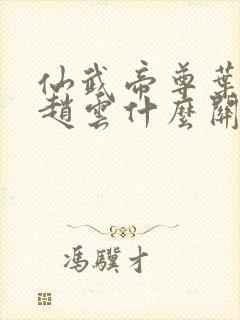 仙武帝尊葉
趙雲什麼關
馮驥才